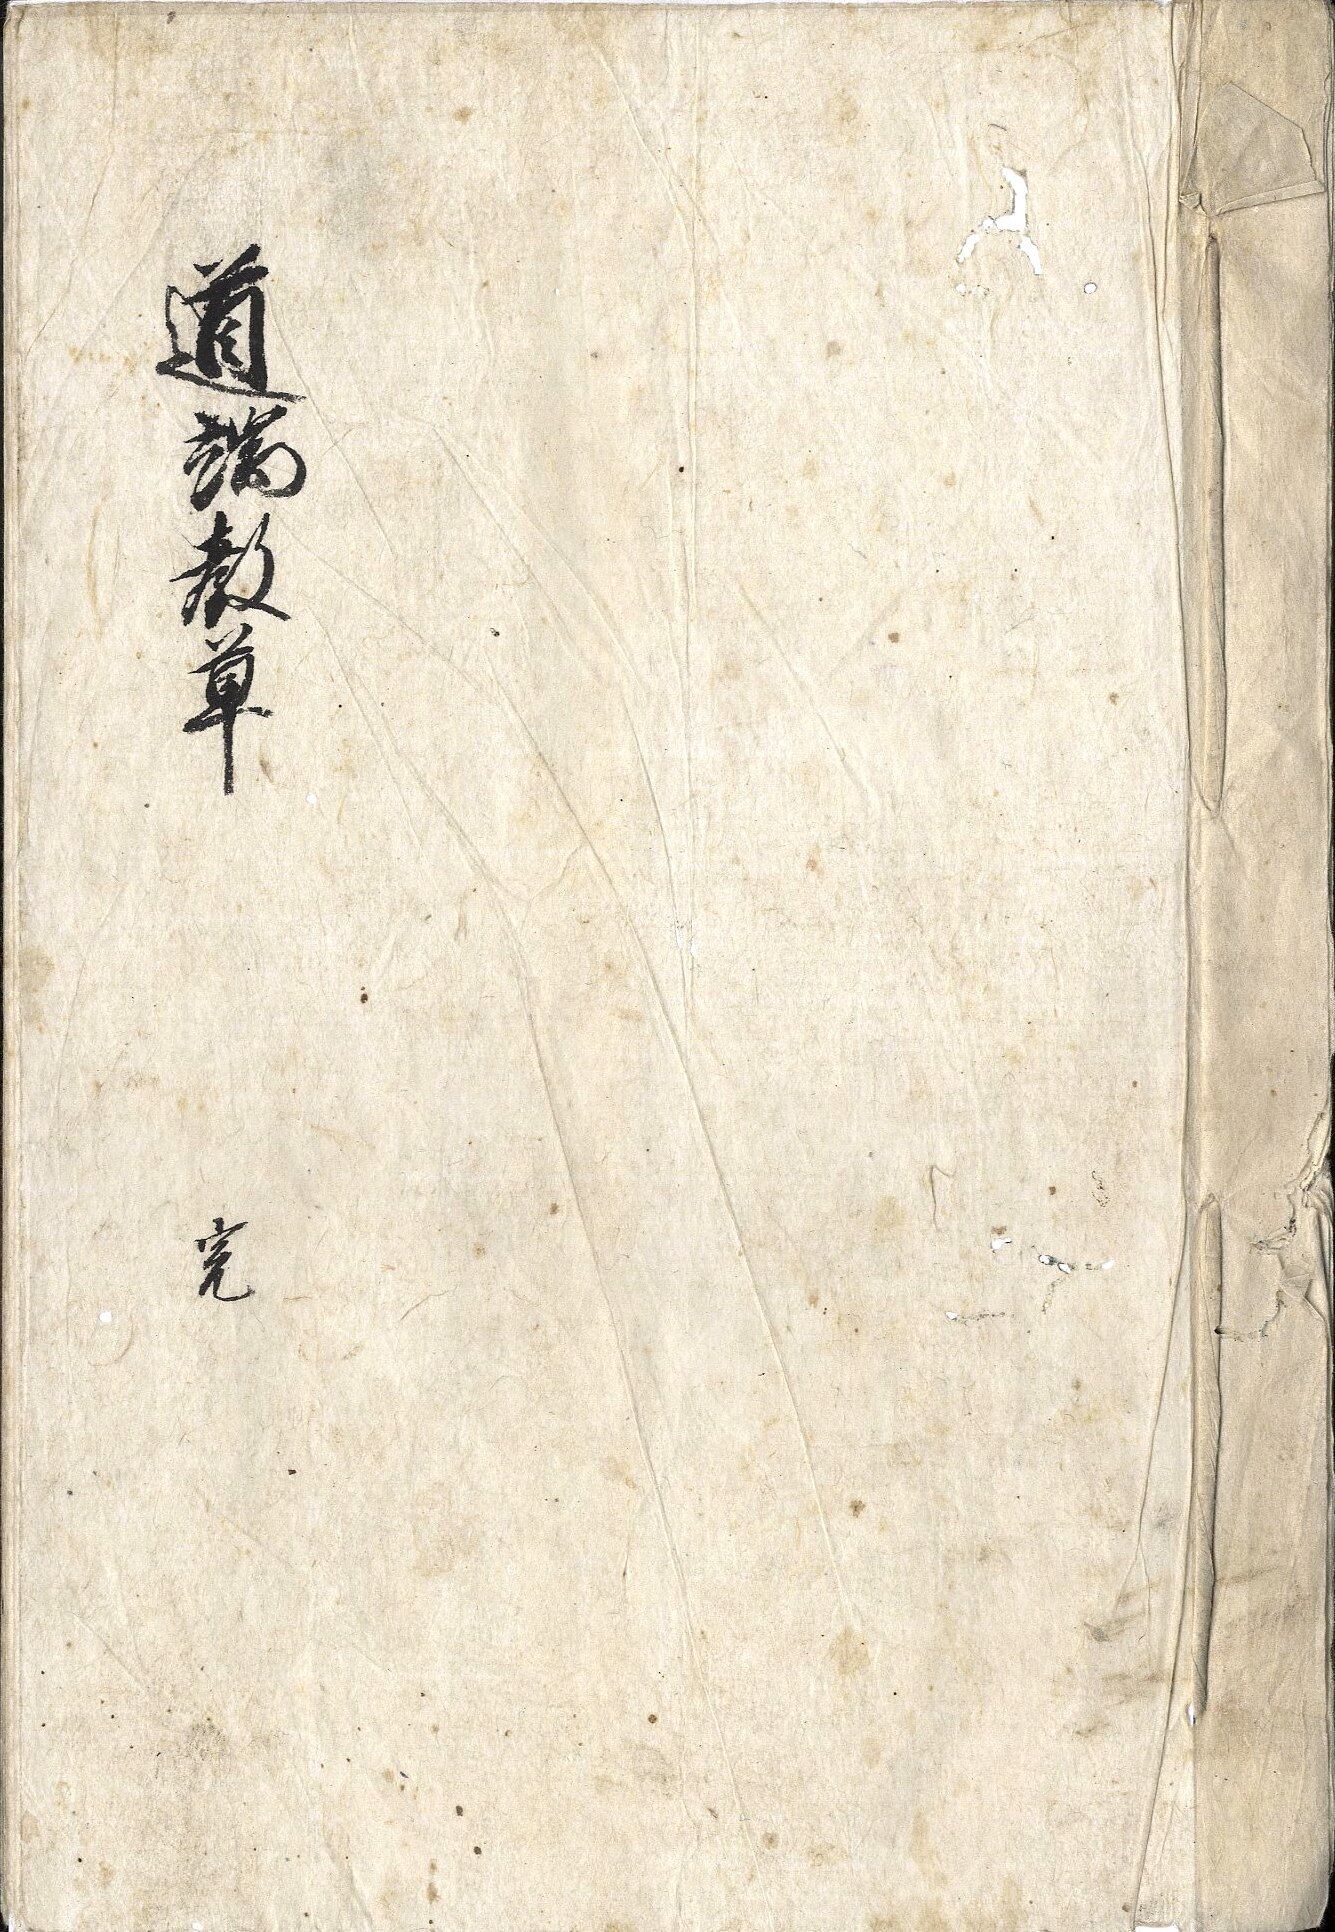 道端教草
完